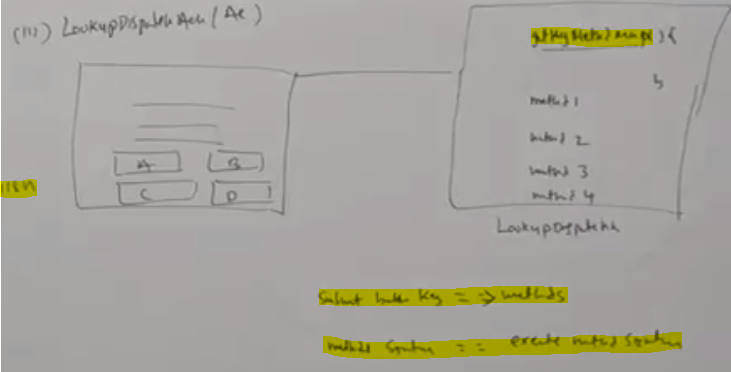 (iii) LookupDispatchAction (Ac)
getKeyMethodMap() {
}
method 1
method 2
method 3
method 4
LookupDispatch
A B
C D
I18N
Submit button Key = => methods
method Syntax == execute method Syntax